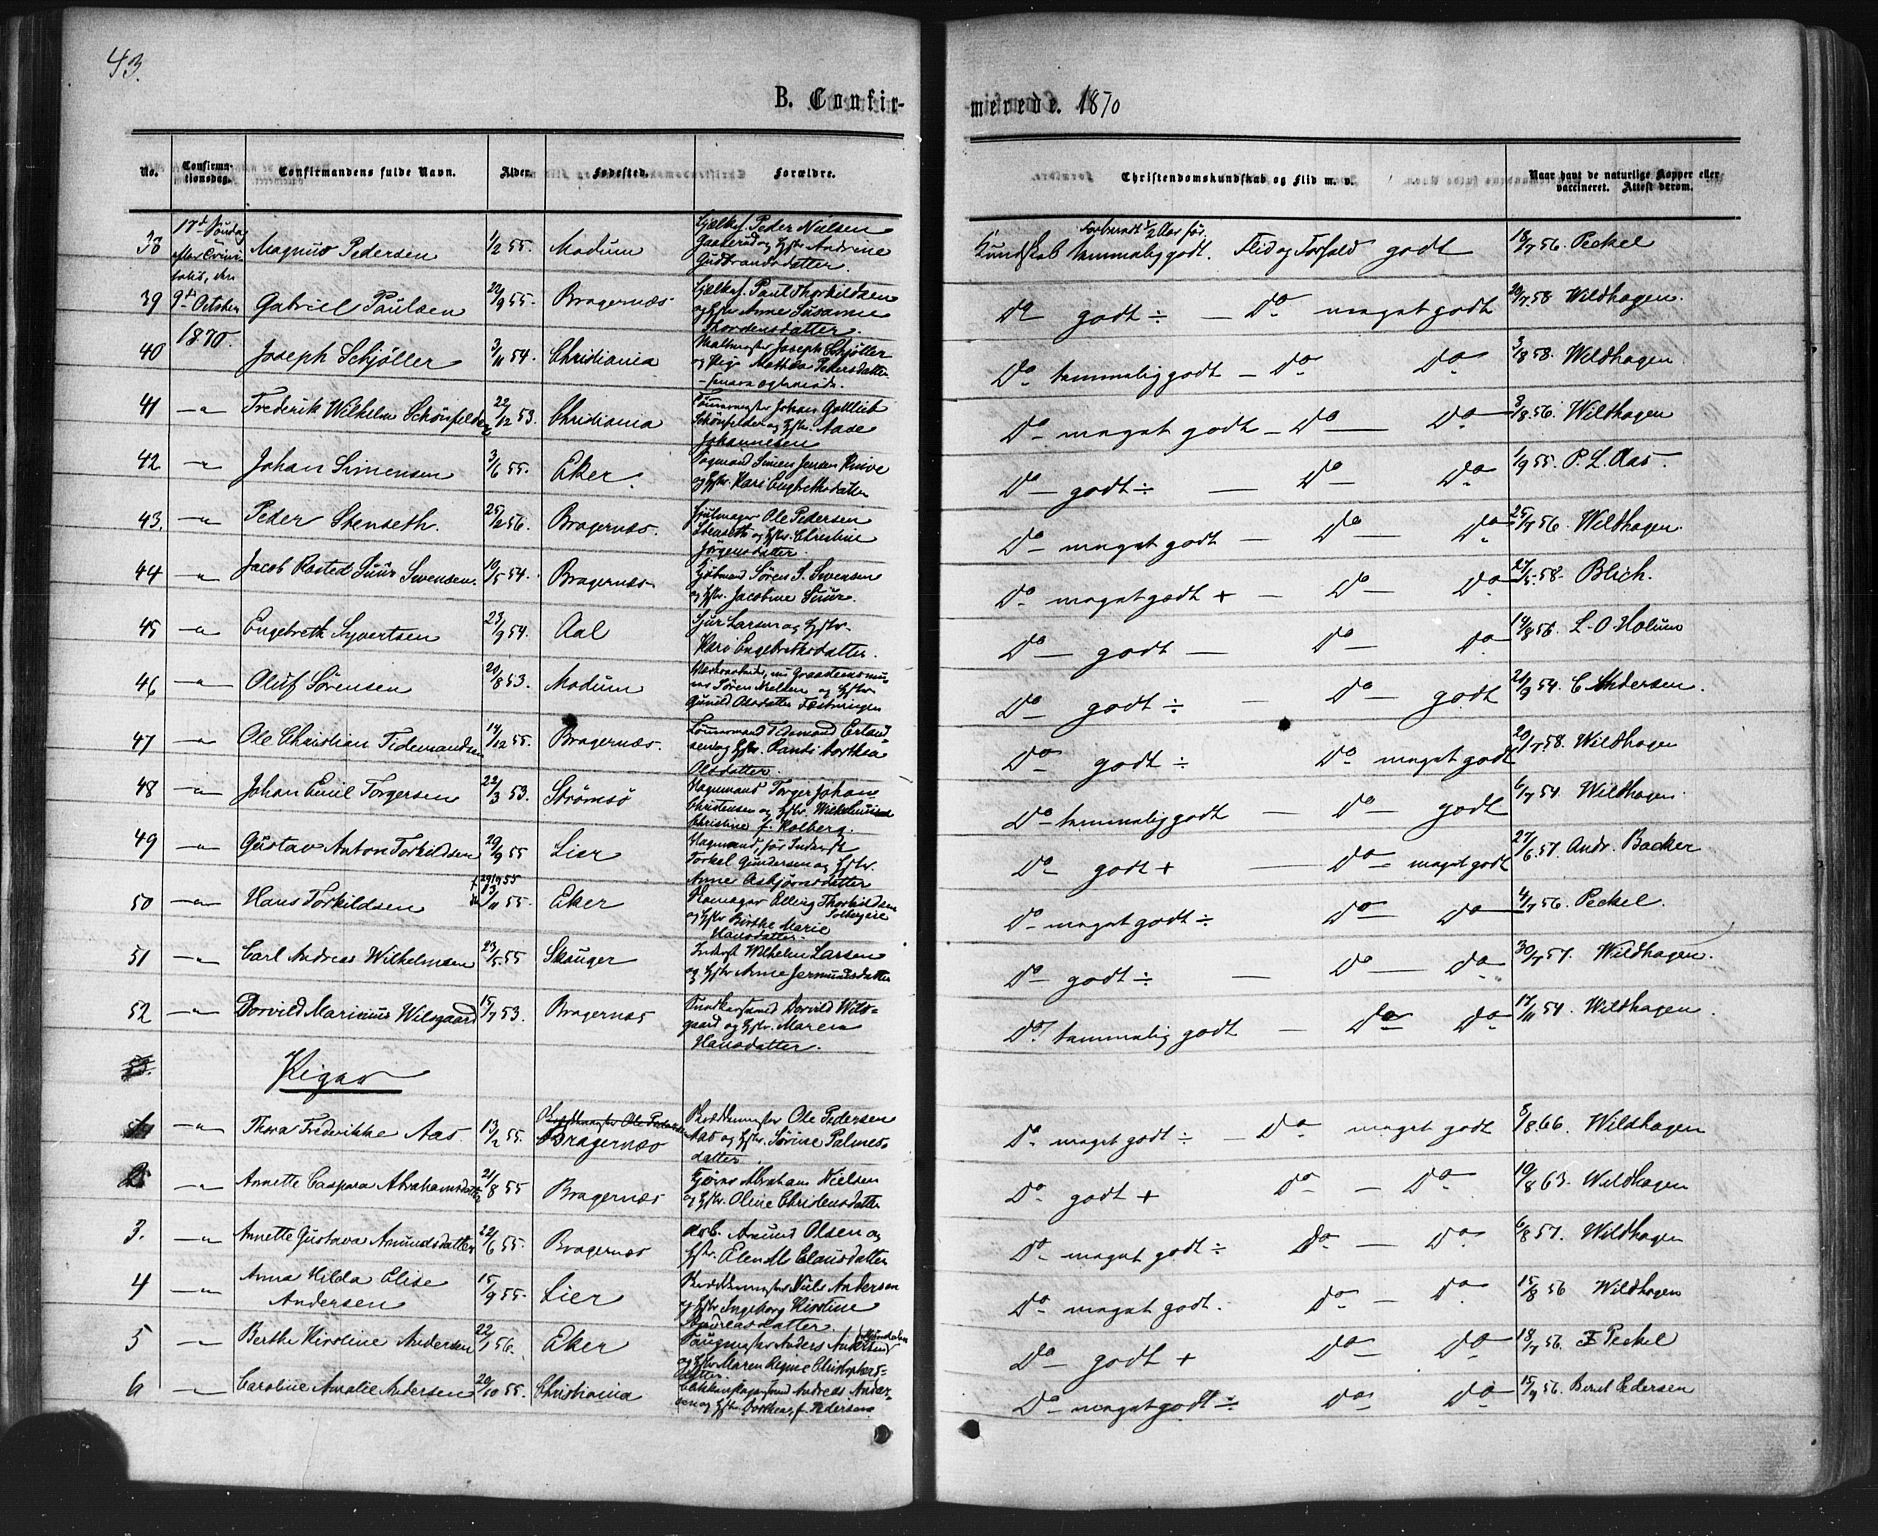 43.
B. Confirmerede. 1870
No. Confirmationsdag. Confirmandens fulde Navn. Alder. Fødested. Forældre. Christendomskundskab og Flid m. v. Naar havt de naturlige Kopper eller vaccineret. Attest derom.
17d Søndag efter Trinitatis, den 9de October 1870.
38 Magnus Pedersen 1/2 55. Modum Peder Nielsen Gaaserud og Hstr Andrine Gudbrandsdatter. Kundskab temmelig godt. Flid og Forhold godt 18/7 56. Peckel
39 Gabriel Paulsen 22/9 55. Bragernæs Paul Thorkildsen og Hstr Anne Susanne Thordensdatter. Do godt ÷ — Do meget godt 20/7 58 Wildhagen.
40 Joseph Schjøller 3/11 54. Christiania Joseph Schjøller og Pige Mathea Pedersdatter Do temmelig godt — Do Do 3/8 58. Wildhagen.
41 —"— Frederik Wilhelm Schönfelder 22/12 53. Christiania Johan Gottlieb Schönfelder og Hstr. Aase Johannesen Do meget godt — Do — Do 3/8 56. Wildhagen
42 —"— Johan Simensen 3/6 55. Eker. Simen Jensen og Hstr. Kari Engbrethsdatter Do — godt ÷ — Do — Do 1/9 55. P. L. Aas.
43. —"— Peder Stenseth. 25/2 56. Bragernæs. Hjulmager Ole Pedersen Stenseth og Hstr. Christine Jørgensdatter. Do meget godt — Do — Do 25/7 56. Wildhagen.
44 —"— Jacob Rasted Suur Svensen. 10/5 54. Bragernæs Kjøbmand Søren S. Svensen og Hstr. Jacobine Suur. Do meget godt + — Do — Do 27/5 58. Blich.
45 —"— Engebreth Syvertsen 23/9 54. Aal Sjur Larsen og Hstr. Kari Engebrethsdatter. Do — godt — Do — Do 14/8 56. L. O. Holum
46 —"— Oluf Sørensen 20/8 53. Modum Søren Nielsen og Hstr Gunild Olesdatter Do godt ÷ — Do — godt 21/9 54. C. Andersen.
47 —"— Ole Christian Tidemandsen 14/12 55. Bragernæs. Tidemand Erlandsen og Hstr. Randi Dorthea Olsdatter. Do godt ÷ Do meget godt 20/7 58. Wildhagen
48 —"— Johan Emil Torgersen 22/3 53. Strømsø Vognmand Torger Johan Christensen og Hstr. Wilhelmine Christine f. Holberg. Do temmelig godt — Do — godt 6/7 54. Wildhagen.
49 —"— Gustav Anton Torkildsen 29/9 55 Lier Vognmand, før Inderst Torkel Gundersen og Hstr. Anne Asbjørnsdatter Do godt + — Do — meget godt 27/6 57. Andr. Backer
50 —"— Hans Torkildsen 13/11 55. Eker Elling Thorkildsen Solbergeie og Hstr Birthe Marie Hansdatter. Do meget godt ÷ Do Do 4/7 56. Peckel.
51 —"— Carl Andreas Wilhelmsen 23/5 55 Skouger Inderst Wilhelm Larsen og Hstr Anne Jermundsdatter Do godt ÷ — Do — Do 30/7 57. Wildhagen.
52 —"— Dorvild Marinius Wilsgaard 15/7 53. Bragernæs Dorvild Wilsgaard og Hstr. Maren Hansdatter. Do temmelig godt — Do Do 17/11 54. Wildhagen.
Piger
—"— Thora Frederikke Aas. 13/2 55. Bragernæs Bræddemester Ole Pedersen Aas og Hstr. Sørine Palmesdatter. Do meget godt ÷ — Do meget godt 8/8 66. Wildhagen
2. —"— Annette Caspara Abrahamsdatter 21/8 55 Bragernæs Abraham Nielsen og Hstr. Oline Christensdatter Do godt + Do — Do 10/8 63. Wildhagen
3. —"— Annette Gustava Amundsdatter 22/6 55. Bragernæs Arb. Amund Olsen og Hstr. Elen M. Clausdatter Do meget godt ÷ Do — Do 6/8 57. Wildhagen
4 —"— Anna Hilda Elise Andersen 15/9 55. Lier Bræddemester Niels Andersen og Hstr Ingeborg Kirstine Andreasdatter. Do meget godt. Do — Do 15/8 56 Wildhagen
5 —"— Berthe Kirstine Andersen 22/1 56. Eker Anders Andersen og Hstr Maren Regine Christophersdatter. Do godt + Do Do 18/7 56. Peckel
6 —"— Caroline Amalie Andersen 20/10 55. Christiania Andreas Andersen og Hstr Dorthea f. Pedersen Do meget godt ÷ Do Do 15/9 56. Bernt Pedersen